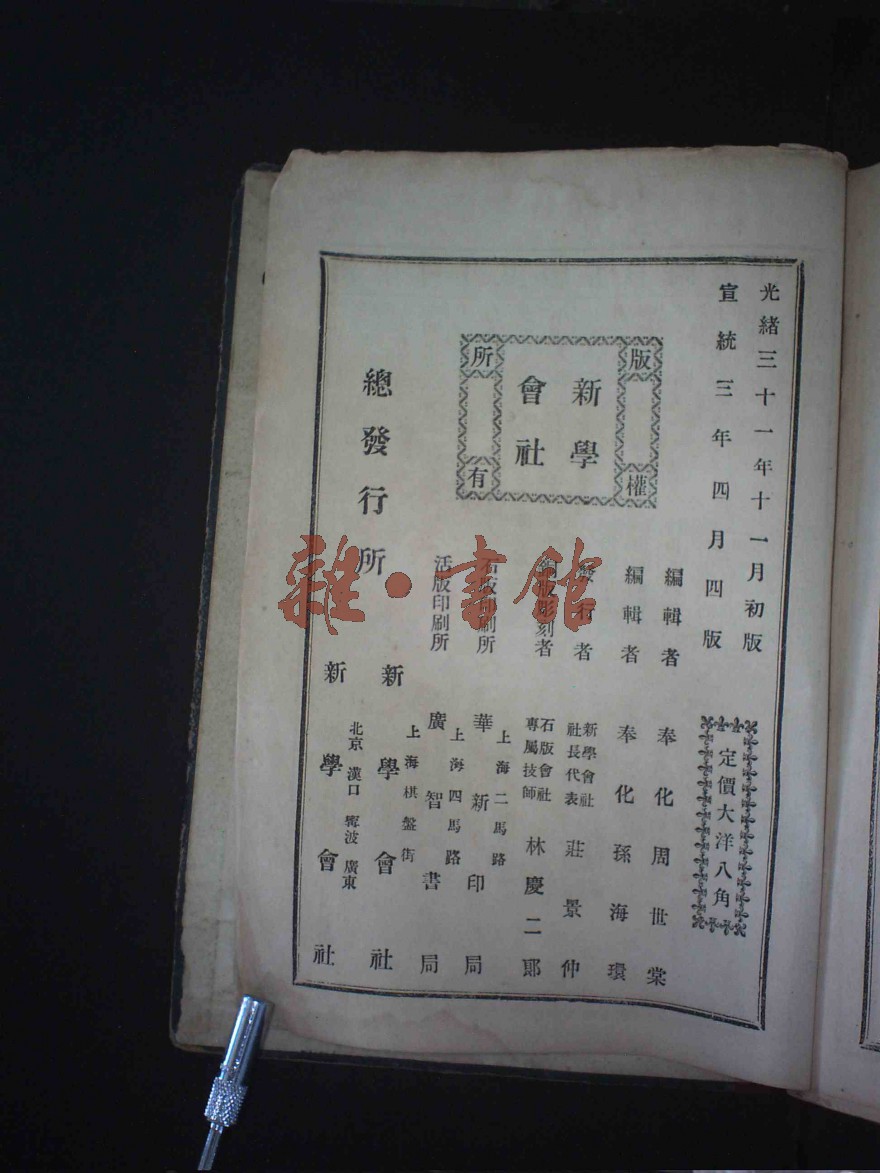 光緒三十一年十一月初版
宣統三年四月四版
定價大洋八角
版權所有
新學會社
編輯者 奉化周世棠
編輯者 奉化孫海環
發行者 新學會社社長代表 莊景仲
銅版彫刻者 石版會社專屬技師 林慶二郎
石版印刷所 上海二馬路 華新印局
活版印刷所 上海四馬路 廣智書局
總發行所
上海棋盤街 新學會社
北京 漢口 寧波 廣東 新學會社
雜·書館